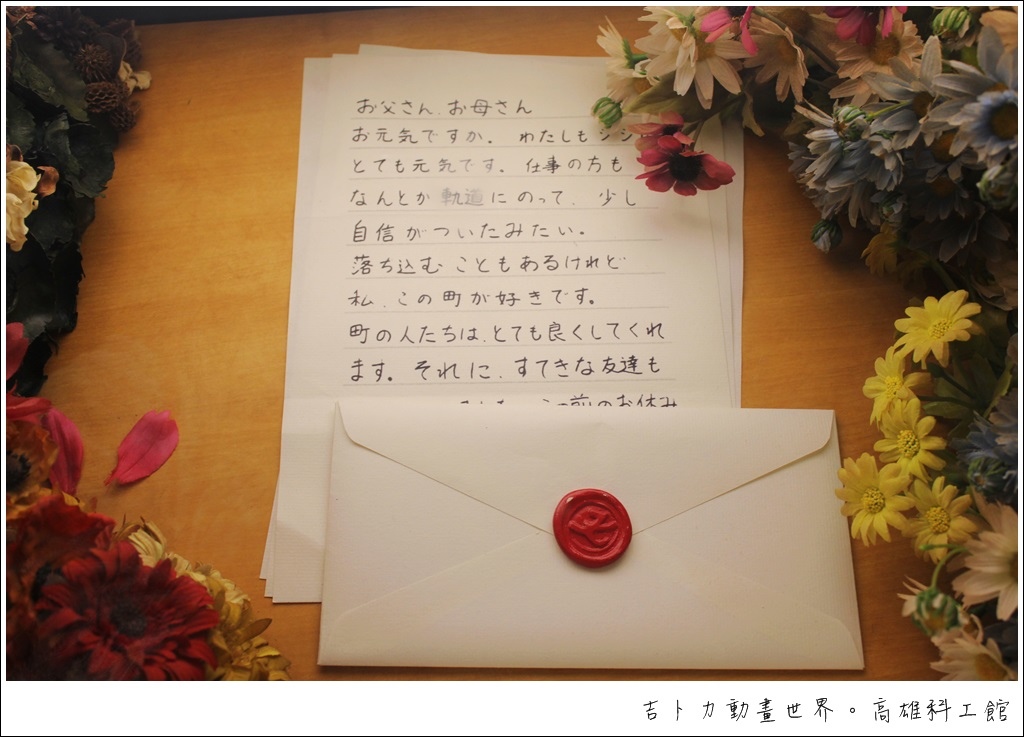 お父さん、お母さん
お元気ですか。わたしもジジ
とても元気です。仕事の方も
なんとか軌道にのって、少し
自信がついたみたい。
落ち込むこともあるけれど
私、この町が好きです。
町の人たちは、とても良くしてくれ
ます。それに、すてきな友達も
前のお休み
吉卜力動畫世界。高雄科工館